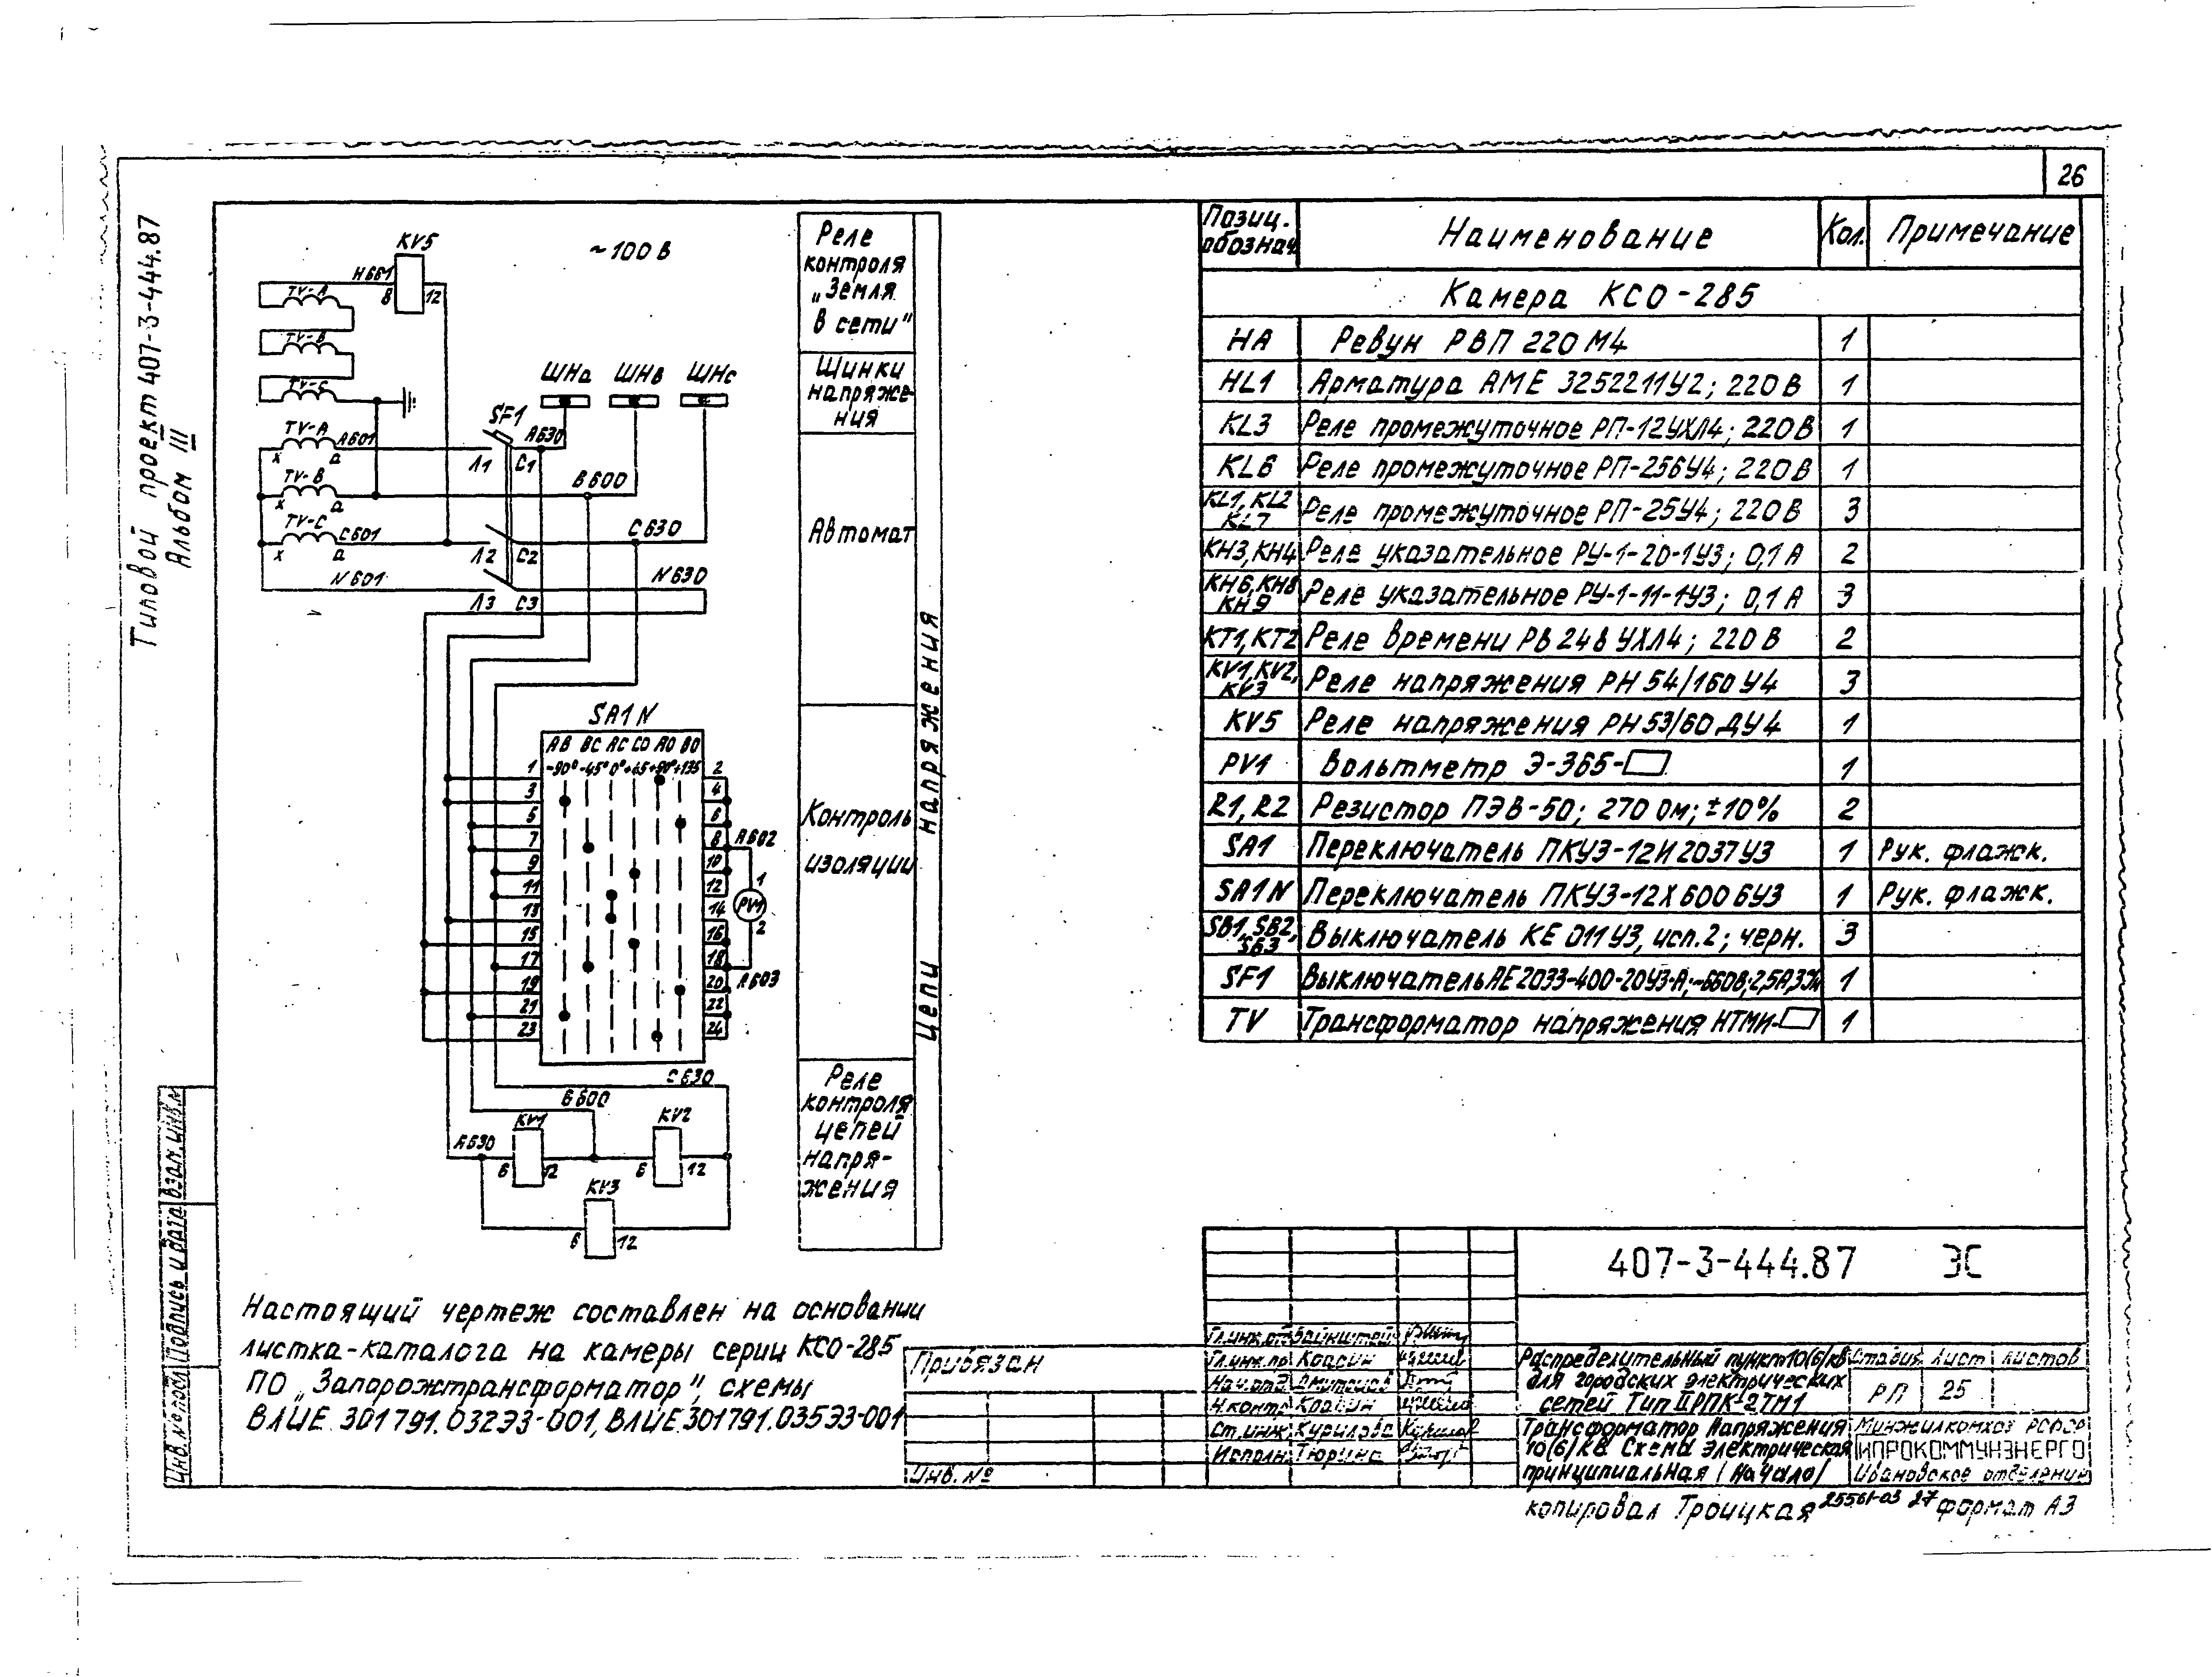 26
Типовой проект 407-3-444.87
Альбом III
~100 В
KV5
Н661
8
12
TV-A
TV-B
TV-C
ШНа ШНв ШНс
SF1
TV-A
А601
А630
х
а
Л1 С1
TV-B
В600
х
а
TV-C
С601
С630
х
а
Л2 С2
N601
N630
Л3 С3
SA1N
АВ ВС АС СО АО ВО
-90° -45° 0° +45 +90° +135
1 2
3 4
5 6
7 8
9 10
11 12
13 14
15 16
17 18
19 20
21 22
23 24
А602
1
PV1
2
А603
С630
В600
KV1
KV2
А630
6 12
6 12
KV3
6 12
Реле
контроля
„Земля
в сети"
Шинки
напряже-
ния
Автомат
Контроль
изоляции
Реле
контроля
цепей
напря-
жения
Цепи напряжения
Позиц. обознач. Наименование Кол. Примечание
Камера КСО-285
НА Ревун РВП 220М4 1
HL1 Арматура АМЕ 3252211У2; 220В 1
KL3 Реле промежуточное РП-12УХЛ4; 220В 1
KL6 Реле промежуточное РП-256У4; 220В 1
KL1, KL2 KL7 Реле промежуточное РП-25У4; 220В 3
КН3, КН4 Реле указательное РУ-1-20-1У3; 0,1А 2
КН6, КН8 КН9 Реле указательное РУ-1-11-1У3; 0,1А 3
КТ1, КТ2 Реле времени РВ 248 УХЛ4; 220В 2
KV1, KV2, KV3 Реле напряжения РН 54/160 У4 3
KV5 Реле напряжения РН 53/60 ДУ4 1
PV1 Вольтметр Э-365- 1
R1, R2 Резистор ПЭВ-50; 270 Ом; ±10% 2
SA1 Переключатель ПКУ3-12И 2037 У3 1 Рук. флажк.
SA1N Переключатель ПКУ3-12Х 6006У3 1 Рук. флажк.
SB1, SB2, SB3 Выключатель КЕ 011 У3, исп.2; черн. 3
SF1 Выключатель АЕ 2033-400-20У3-А; ~660В; 2,5А, 3Iн 1
TV Трансформатор напряжения НТМИ- 1
Настоящий чертеж составлен на основании
листка-каталога на камеры серии КСО-285
ПО „Запорожтрансформатор", схемы
ВЛИЕ.301791.032Э3-001, ВЛИЕ.301791.035Э3-001
Привязан
Инв. №
Взам. инв.№
Подпись и дата
Инв.№ подл.
407-3-444.87 ЭС
Гл.инж.от. Вайнштейн
Гл.инж.пр. Коасин
Нач.отд.
Н.контр. Коасин
Ст.инж. Курилова
Исполн. Тюрина
Распределительный пункт 10(6) кВ
для городских электрических
сетей Тип II РПК-2ТМ1
Стадия Лист Листов
РП 25
Трансформатор напряжения
10(6) кВ. Схема электрическая
принципиальная (Начало)
Минжилкомхоз РСФСР
ГИПРОКОММУНЭНЕРГО
Ивановское отделение
копировал Троицкая 25561-03 27 формат А3